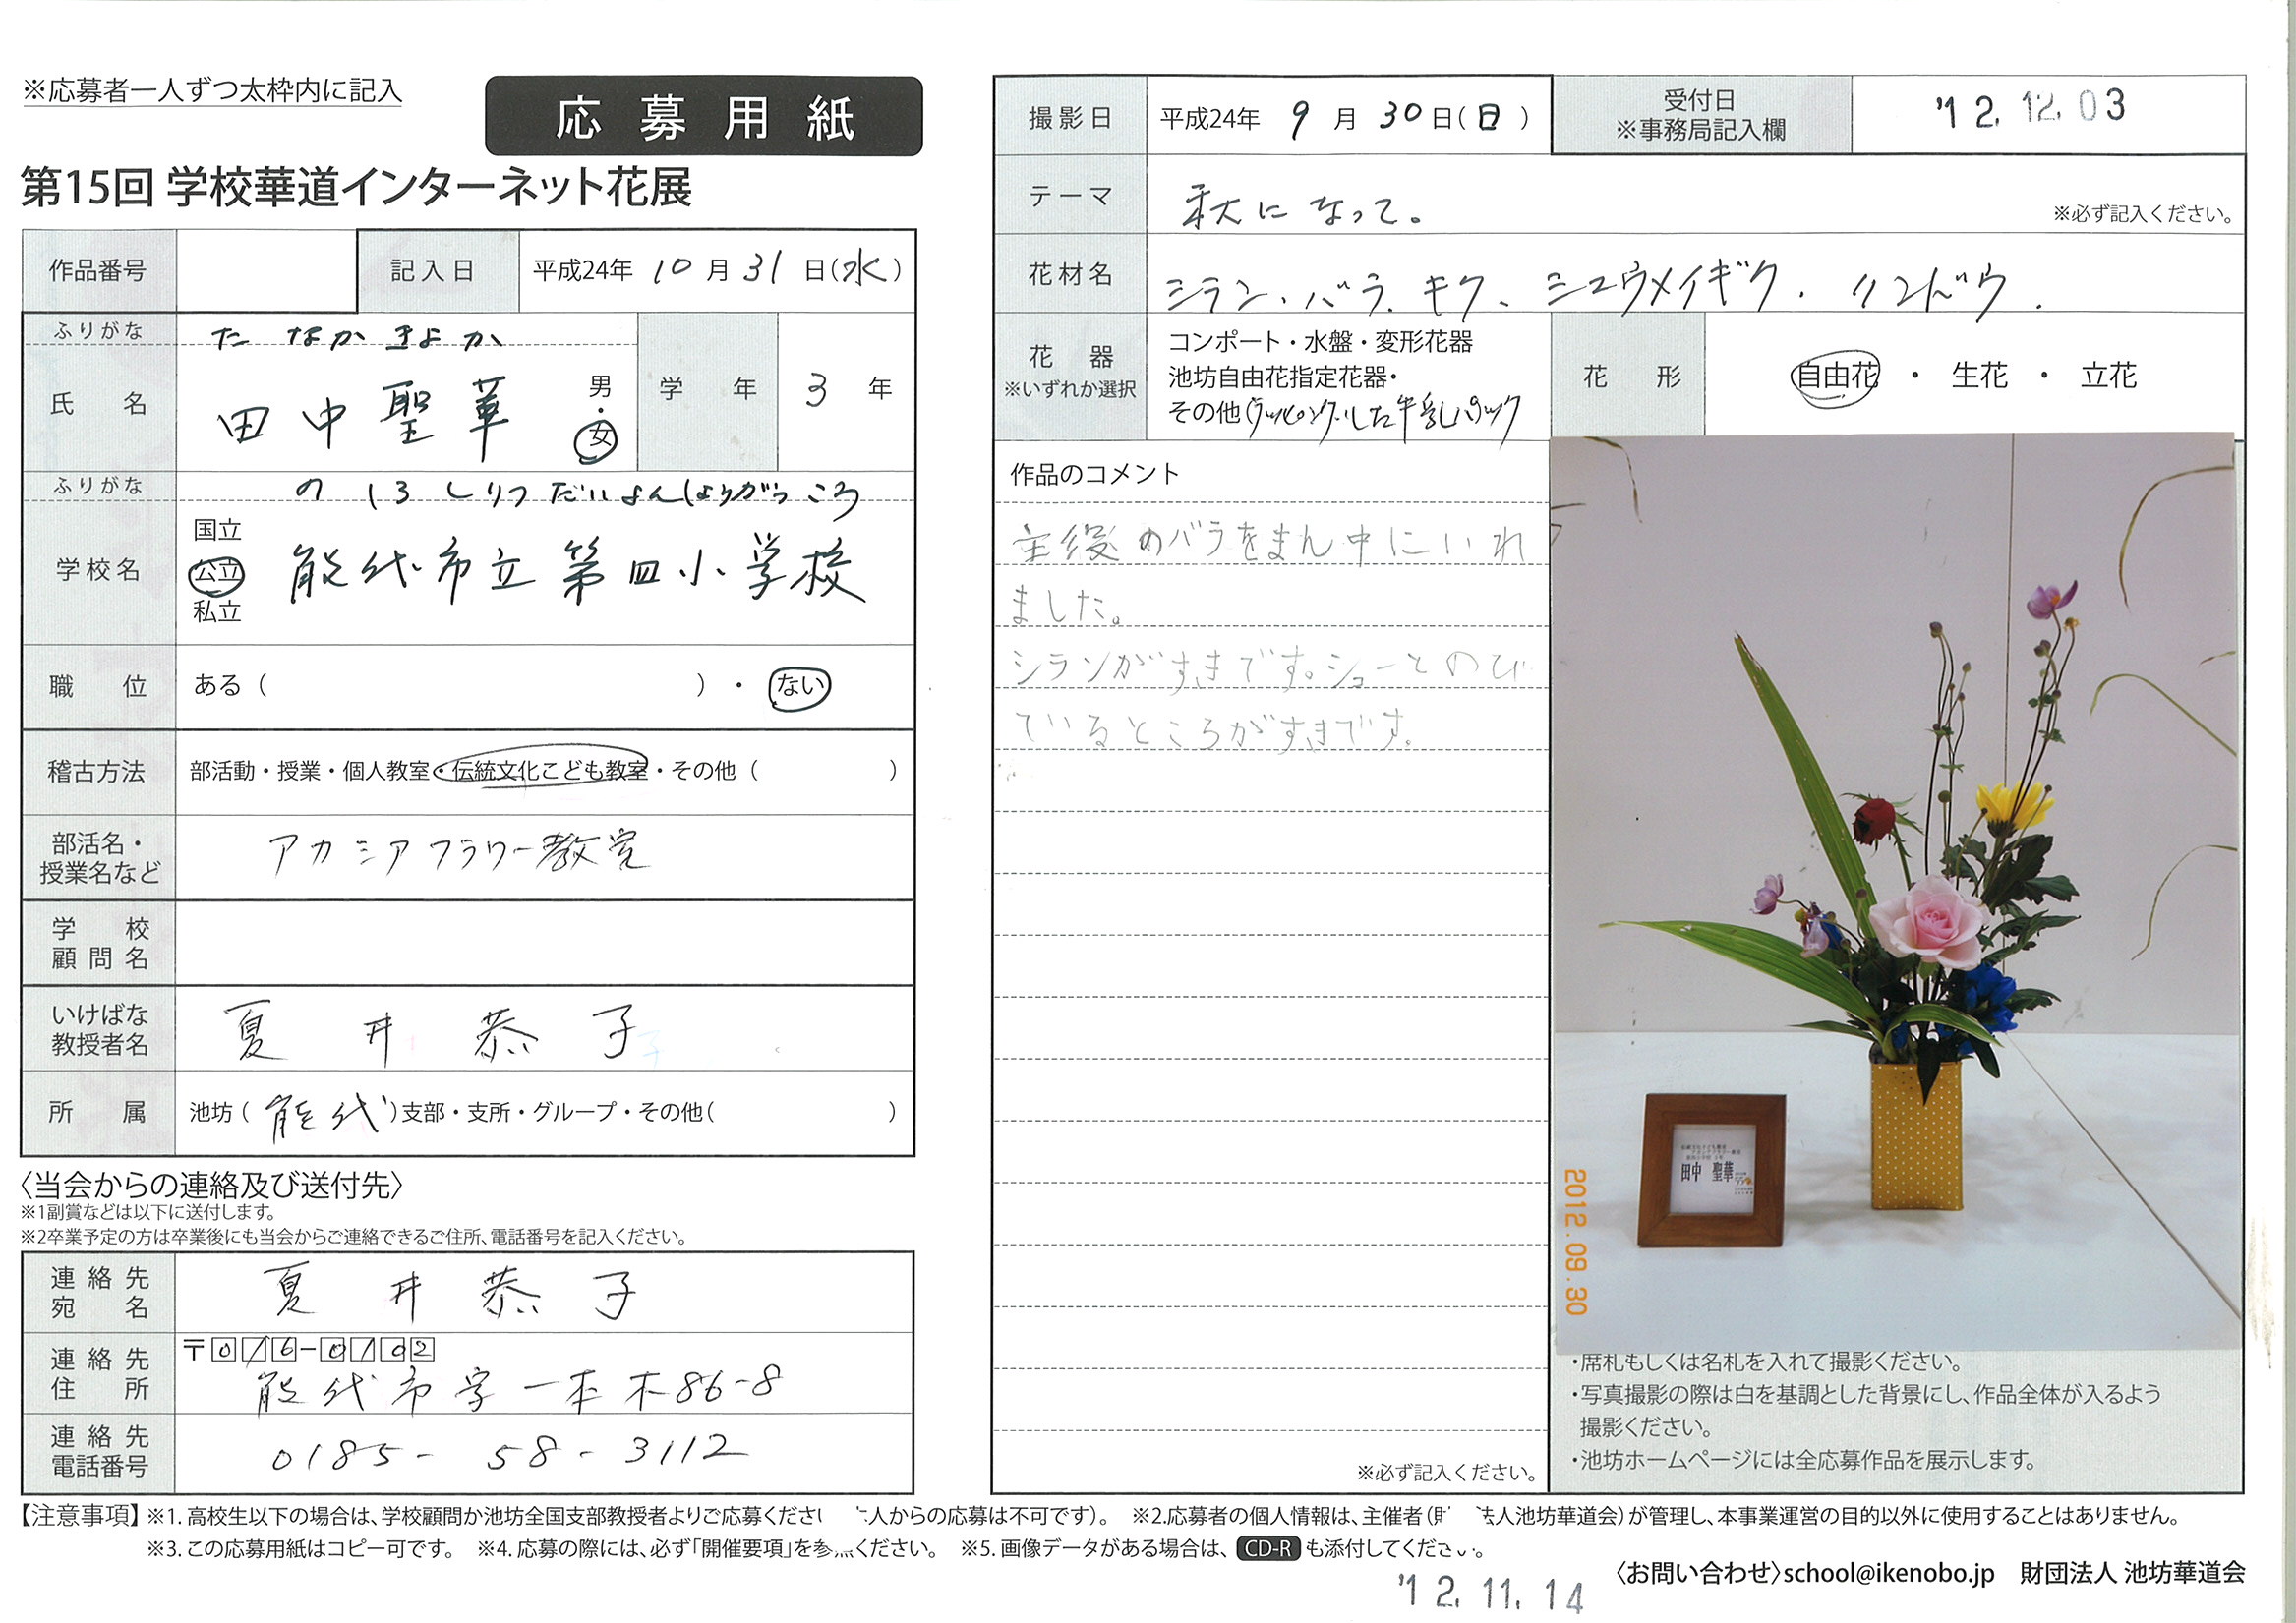 ※応募者一人ずつ太枠内に記入
応募用紙
第15回 学校華道インターネット花展
作品番号
記入日 平成24年 10月 31日(水)
ふりがな たなか きよか
氏名 田中聖華 男・女
学年 3年
ふりがな のしろしりつだいよんしょうがっこう
学校名 国立 公立 私立 能代市立第四小学校
職位 ある( )・ない
稽古方法 部活動・授業・個人教室・伝統文化こども教室・その他( )
部活名・授業名など アカシアフラワー教室
学校顧問名
いけばな教授者名 夏井恭子
所属 池坊(能代)支部・支所・グループ・その他( )
〈当会からの連絡及び送付先〉
※1副賞などは以下に送付します。
※2卒業予定の方は卒業後にも当会からご連絡できるご住所、電話番号を記入ください。
連絡先宛名 夏井恭子
連絡先住所 〒016-0102
能代市字一本木86-8
連絡先電話番号 0185-58-3112
撮影日 平成24年 9月 30日(日)
受付日 ※事務局記入欄 '12.12.03
テーマ 秋になって。 ※必ず記入ください。
花材名 シラン、バラ、キク、シュウメイギク、リンドウ.
花器 ※いずれか選択
コンポート・水盤・変形花器
池坊自由花指定花器・
その他(ラッピングした牛乳パック
花形 自由花・生花・立花
作品のコメント
主役のバラをまん中にいれ
ました。
シランがすきです。シューとのび
ているところがすきです。
※必ず記入ください。
田中 聖華
2012.09.30
・席札もしくは名札を入れて撮影ください。
・写真撮影の際は白を基調とした背景にし、作品全体が入るよう
撮影ください。
・池坊ホームページには全応募作品を展示します。
【注意事項】※1.高校生以下の場合は、学校顧問か池坊全国支部教授者よりご応募くださ 人からの応募は不可です)。 ※2.応募者の個人情報は、主催者(財 法人池坊華道会)が管理し、本事業運営の目的以外に使用することはありません。
※3.この応募用紙はコピー可です。 ※4.応募の際には、必ず「開催要項」を参 ください。 ※5.画像データがある場合は、CD-Rも添付してください。
〈お問い合わせ〉school@ikenobo.jp 財団法人 池坊華道会
'12.11.14